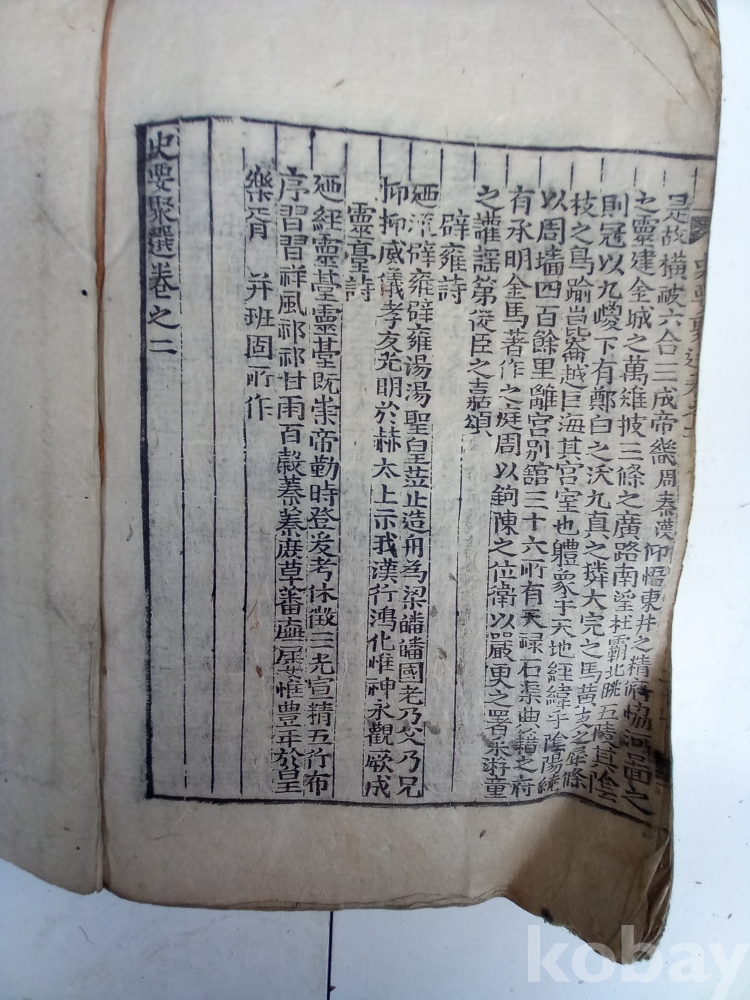 是故橫被六合三成帝畿周秦漢仰悟東井之精俯協河圖之
之靈建金城之萬雉披三條之廣路南望杜霸北眺五陵其陰
則冠以九嵕下有鄭白之沃九真之麟大宛之馬黃支之犀條
枝之鳥踰崑崙越巨海其宮室也體象乎天地經緯乎陰陽繞
以周墻四百餘里離宮別舘三十六所有天祿石渠典籍之府
有承明金馬著作之庭周以鉤陳之位衛以嚴更之署采游童
之讙謠第從臣之嘉頌
辟雍詩
廼流辟雍辟雍湯湯聖皇莅止造舟為梁皤皤國老乃父乃兄
抑抑威儀孝友光明於赫太上示我漢行鴻化惟神永觀厥成
靈臺詩
廼經靈臺靈臺既崇帝勤時登爰考休徵三光宣精五行布
序習習祥風祁祁甘雨百穀蓁蓁庶草蕃廡屢惟豊年於皇
樂胥 并班固所作
史要聚選卷之二
kobay